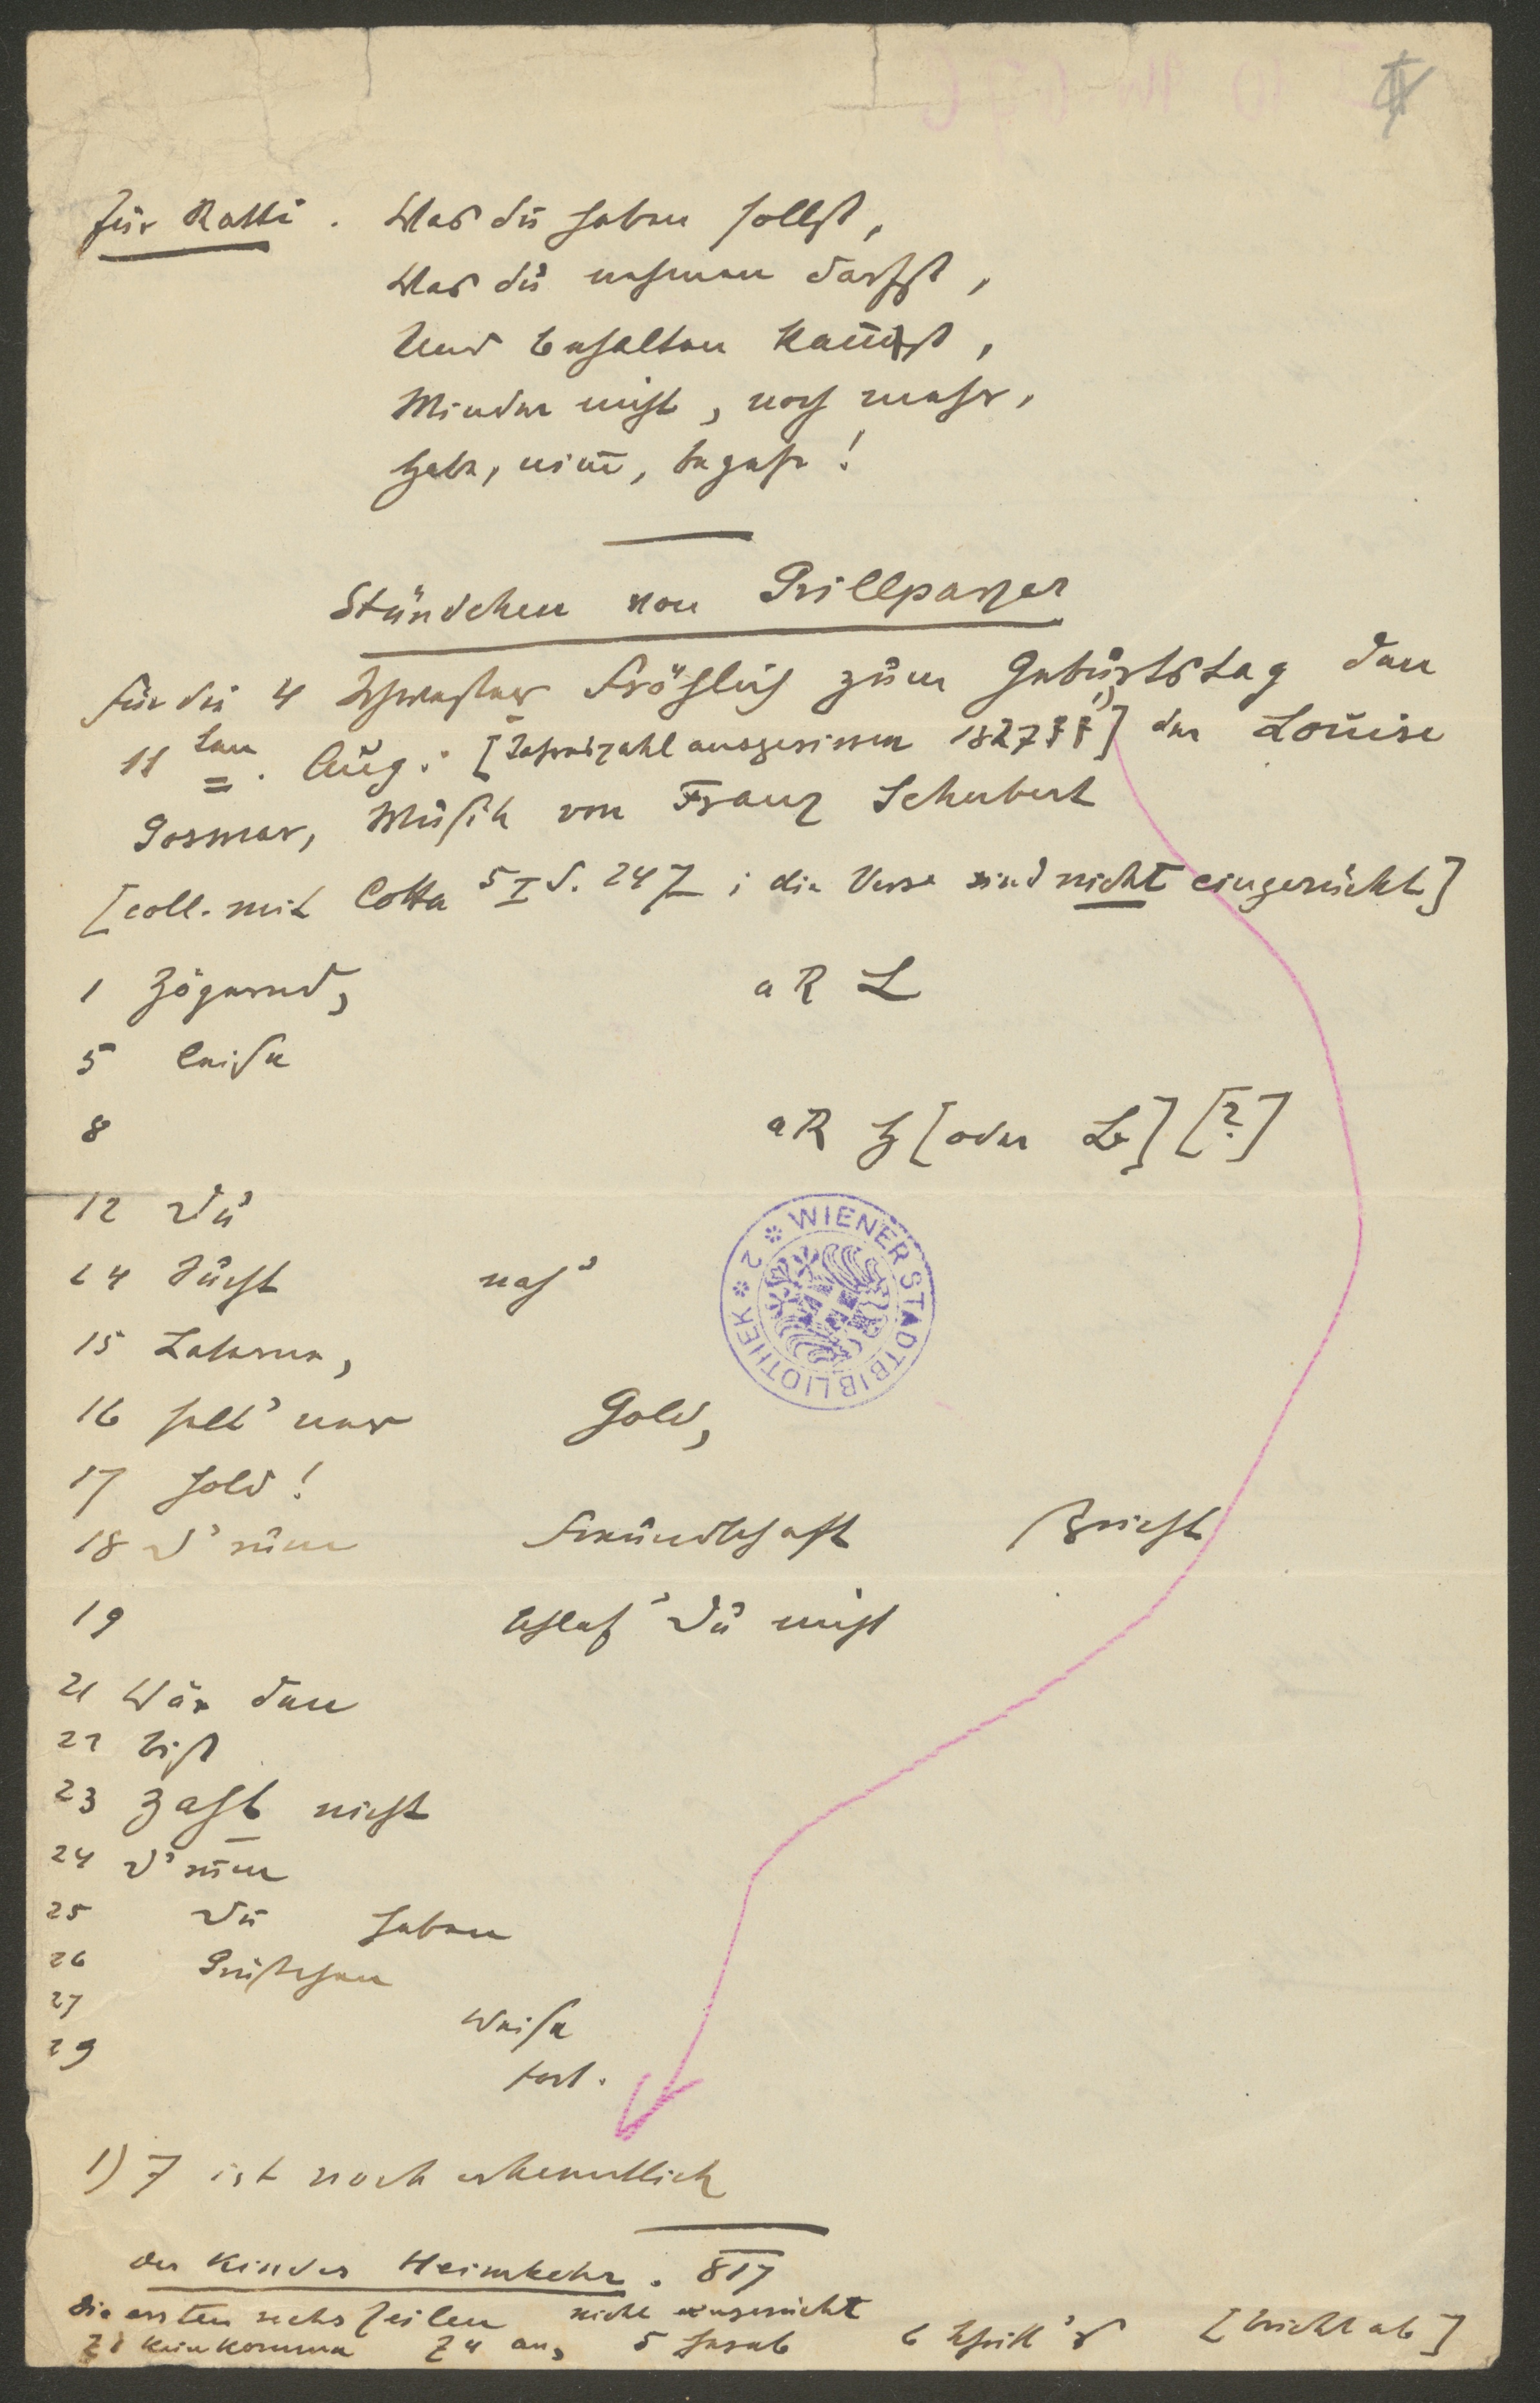 für Katti. Was du haben sollst,
Was du nehmen darfst,
Und behalten kannst,
Minder nicht, noch mehr,
Habe, nim̅, begehr!
Ständchen von Grillparzer
Für die 4 Schwestern Fröhlich zum Geburtstag den
11ten. Aug: [Jahreszahl ausgerissen 1827??] der Louise
Gosmar, Musik von Franz Schubert
[coll. mit Cotta 5 I S. 247; die Verse sind nicht eingerückt]
1 Zögernd, aR L
5 leise
8 aR H [oder Le] [?]
12 Du
14 Sucht nach'
15 Laterne,
16 selt'ner Gold,
17 hold!
18 D'rum Freundschaft spricht
19 Schlaf' Du nicht
21 Wär den
22 bist
23 Zahlt nicht
24 D'rum
25 Du haben
26 Grüßchen
27 Weise
29 fort.
1) 7 ist noch erkenntlich
Der Kinder Heimkehr. 817
die ersten sechs Zeilen nicht eingerückt
Z1 kein Komma Z4 an, 5 herab 6 [bricht ab]
WIENER STADTBIBLIOTHEK 2